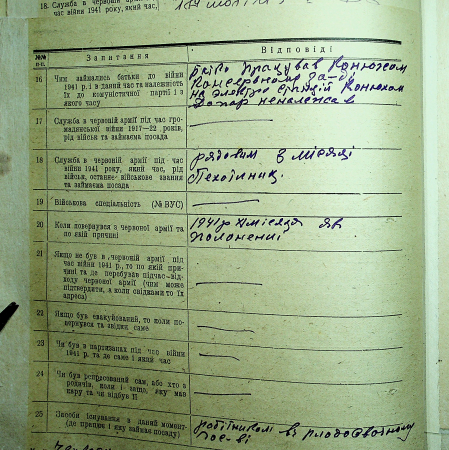 18. Служба в червоній армії під час
війни 1941 року, який час,
№№
п-п.
Запитання
Відповіді
16
Чим займались батьки до війни
1941 р. і в даний час та належність
їх до комуністичної партії і з
якого часу
працував Конюхом
на электро станцій Конюхом
17
Служба з червоній армії під час гро-
мадянської війни 1917—22 років,
рід військ та займаєма посада
18
Служба в червоній армії під час
війни 1941 року, який час, рід
військ, останнє військове звання
та займаєма посада
рядовим 3 місяці
Пехотинец
19
Військова спеціальність (№ ВУС)
20
Коли повернувся з червоної армії та
по якій причині
1941 р місяця
полоненні
21
Якщо не був в червоній армії під
час війни 1941 р., то по якій при-
чині та де перебував підчас від-
ходу червоної армії (чим може
підтвердити, а коли свідками то їх
адреса)
22
Якщо був евакуйований, то коли по-
вернувся та звідки саме
23
Чи був в партизанах під час війни
1941 р. та де саме і який час
24
Чи був репресований сам, або хто з
родичів, коли і защо, яку мав
кару та чи відбув її
25
Засоби існування в даний момент
(де працює і яку займає посаду)
робітником в